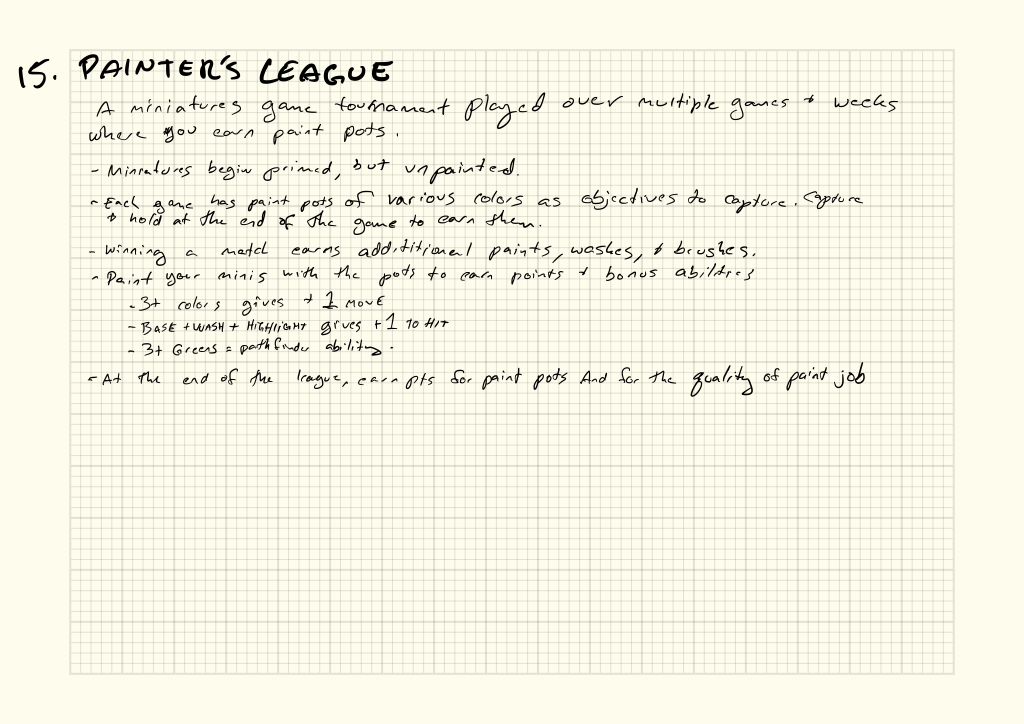 15. PAINTER'S LEAGUE
A miniatures game tournament played over multiple games + weeks
where you earn paint pots.
- Miniatures begin primed, but unpainted.
- Each game has paint pots of various colors as objectives to capture. Capture
+ hold at the end of the game to earn them.
- Winning a match earns addititional paints, washes, & brushes.
- Paint your minis with the pots to earn points + bonus abilities
- 3+ colors gives +1 MOVE
- BASE + WASH + HIGHLIGHT gives +1 TO HIT
- 3+ Greens = pathfinder ability.
- At the end of the league, earn pts for paint pots And for the quality of paint job